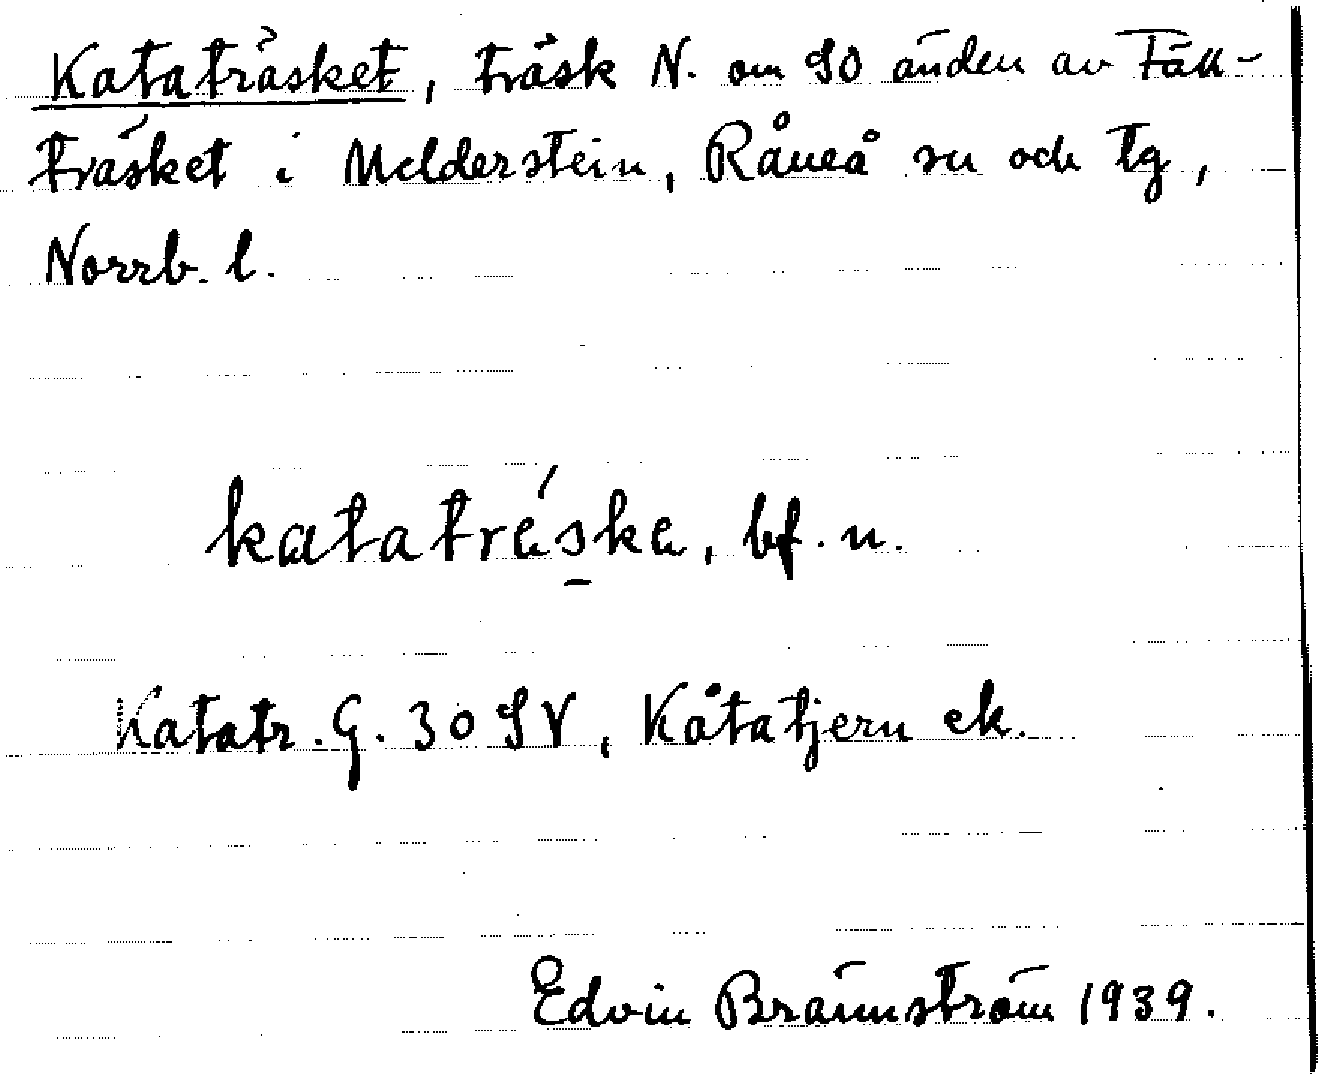 Kataträsket, träsk N. om SO änden av Fäll-
träsket i Melderstein, Råneå sn och tg,
Norrb. l.
katatrḗske, bf. n.
Katatr. G. 30 SV, Kåtatjern ek.
Edvin Brännström 1939.